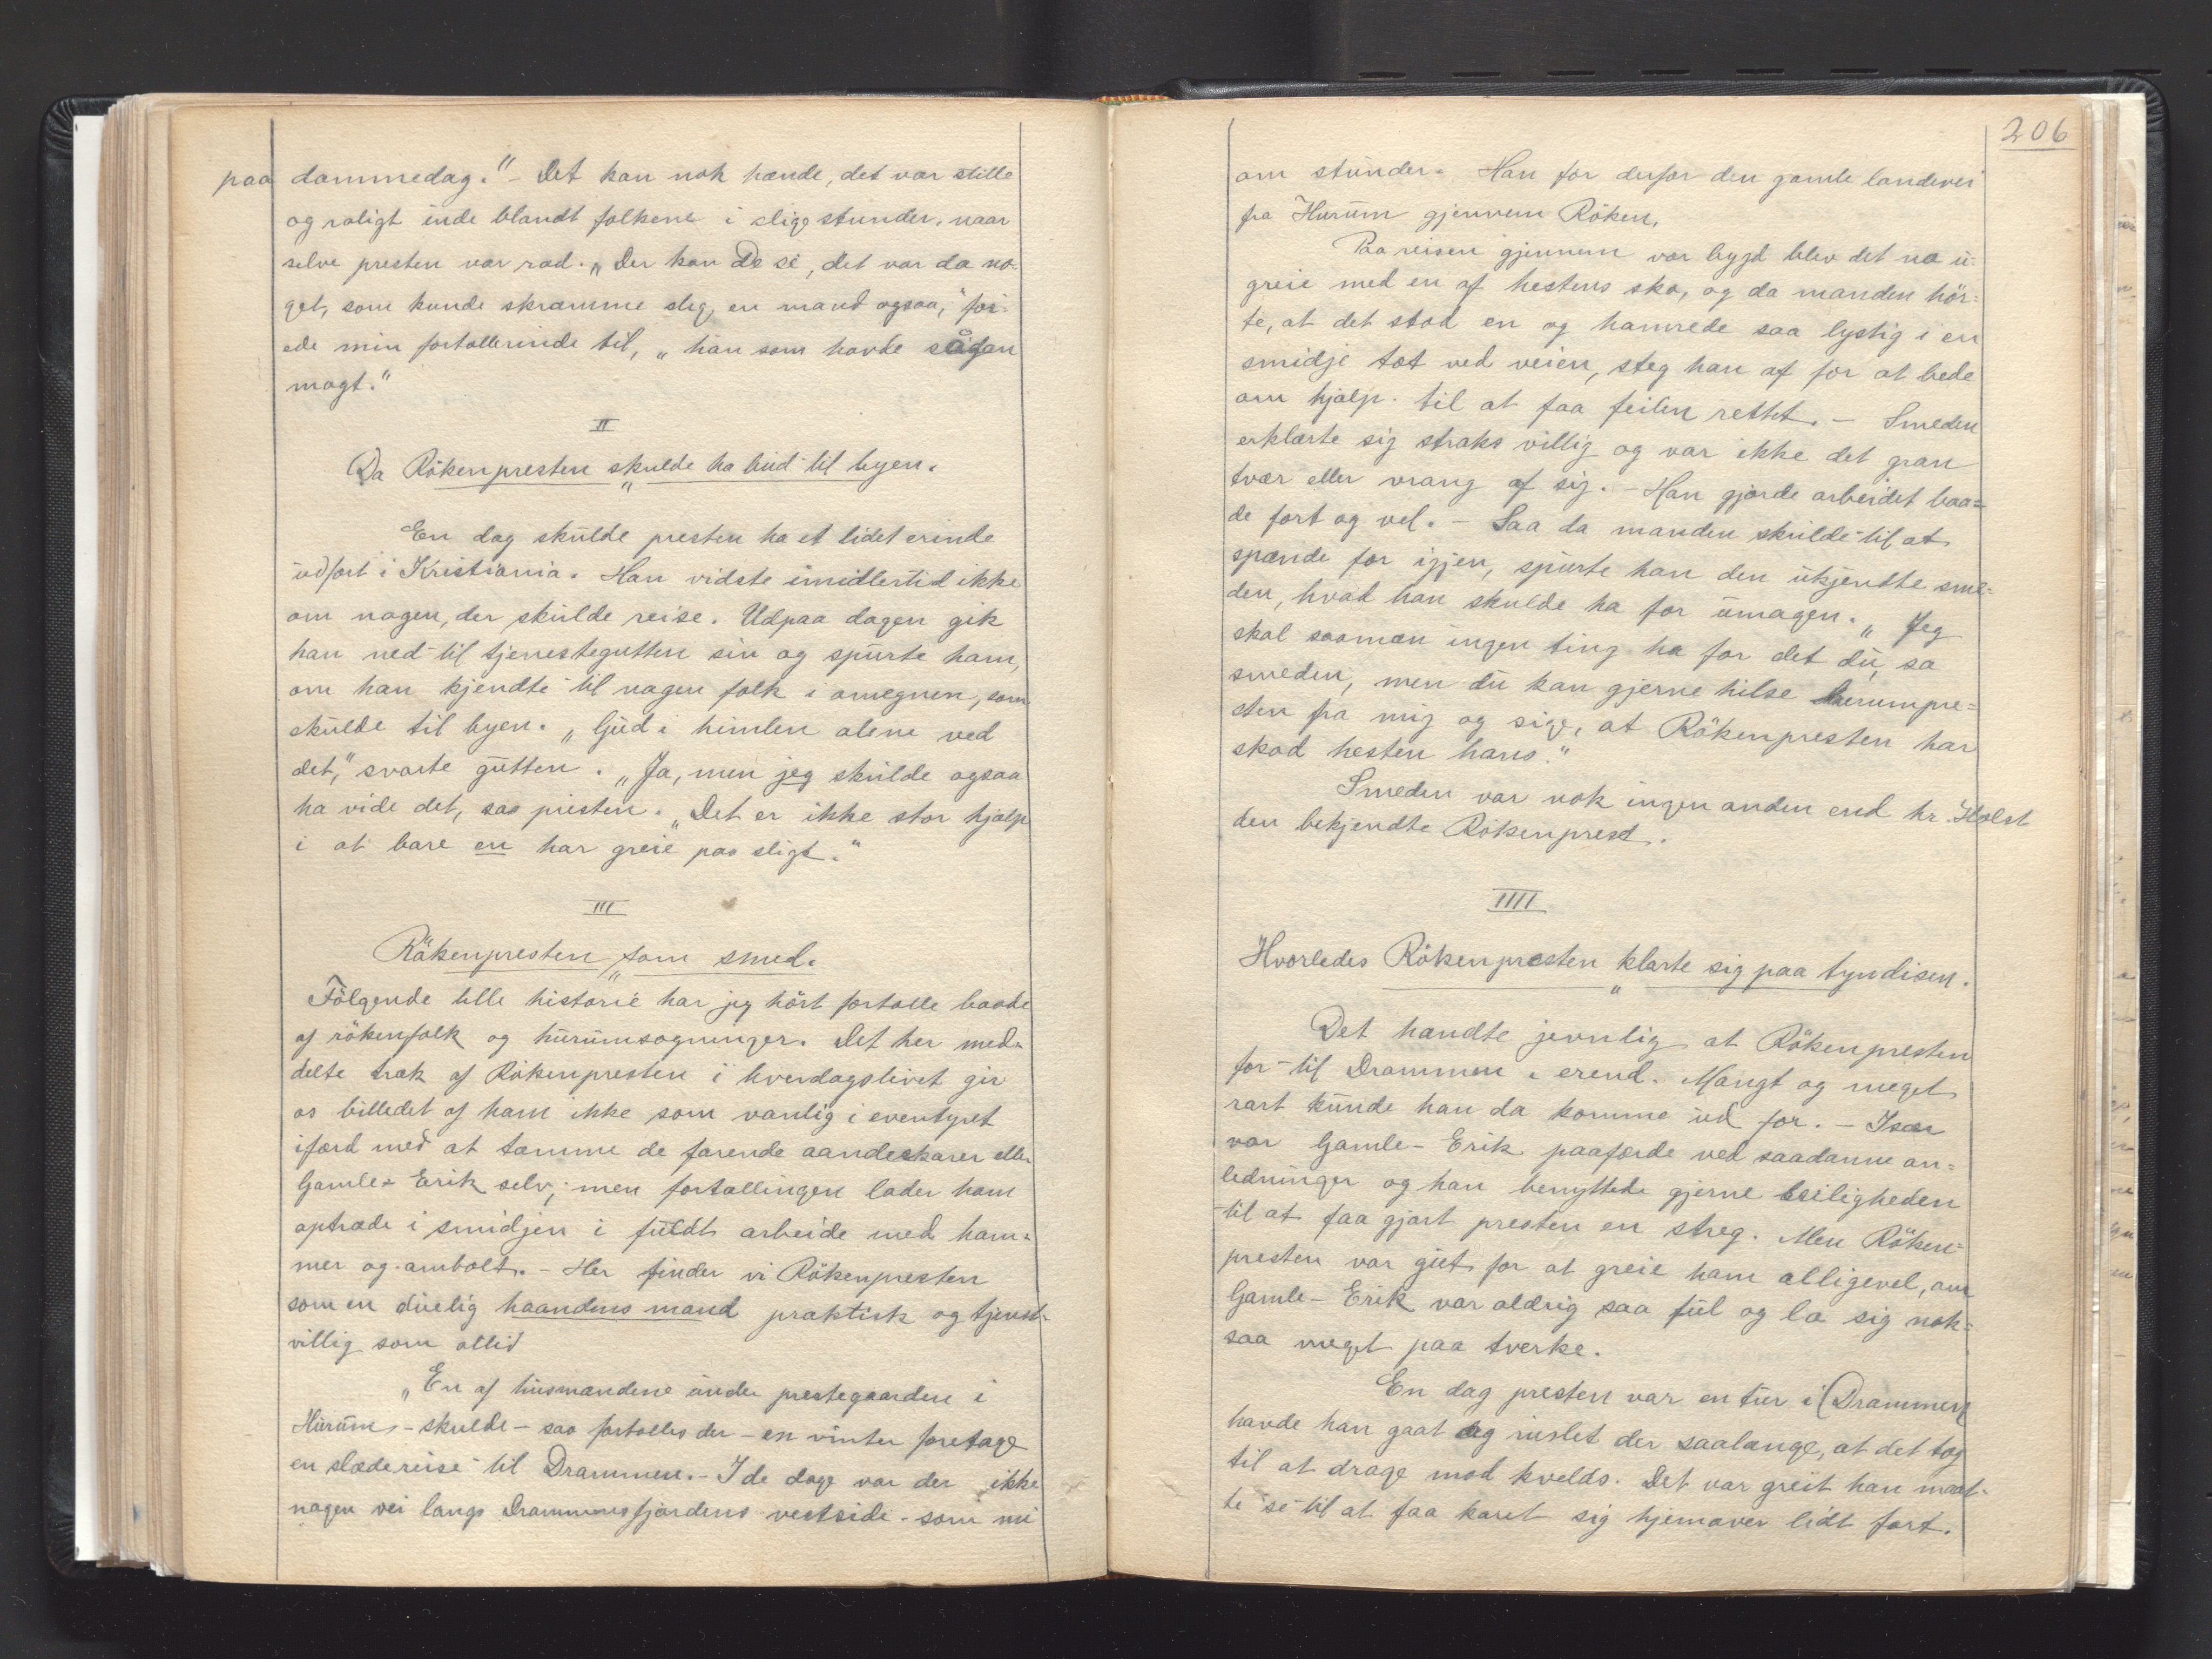 paa dommedag." - Det kan nok hænde, det var stille
og roligt inde blandt folkene i slige stunder, naar
selve presten var ræd. "Der kan De se, det var da no-
get, som kunde skræmme slig en mand ogsaa," föi-
ede min fortællerinde til, "han som havde sådan
magt."
II
Da Rökenpresten skulde ha bud til byen.
En dag skulde presten ha et lidet erinde
udfört i Kristiania. Han vidste imidlertid ikke
om nogen, der skulde reise. Udpaa dagen gik
han ned til tjenestegutten sin og spurte ham,
om han kjendte til nogen folk i omegnen, som
skulde til byen. "Gud i himlen alene ved
det," svarte gutten. "Ja, men jeg skulde ogsaa
ha vide det, saa presten. "Det er ikke stor hjælp
i at bare en har greie paa sligt."
III
Rökenpresten som smed.
Fölgende lille historie har jeg hört fortælle baade
af rökenfolk og hurumsogninger. Det her med-
delte træk af Rökenpresten i hverdagslivet gir
os billedet af ham ikke som vanlig i eventyret
ifærd med at tæmme de farende aandeskarer eller
Gamle-Erik selv; men fortællingen lader ham
optræde i smidjen i fuldt arbeide med ham-
mer og ambolt. - Her finder vi Rökenpresten
som en duelig haandens mand praktisk og tjenst-
villig som altid
"En af husmændene under prestegaarden i
Hurum - skulde - saa fortælles der - en vinter foretage
en slædereise til Drammen. - I de dage var der ikke
nogen vei langs Drammensfjordens vestside - som nu
206
om stunder. Han for derfor den gamle landevei
fra Hurum gjennem Röken.
Paa reisen gjennem vor bygd blev det no u-
greie med en af hestens sko, og da manden hör-
te, at det stod en og hamrede saa lystig i en
smidje tæt ved veien, steg han af for at bede
om hjælp til at faa feilen rettet. - Smeden
erklærte sig straks villig og var ikke det gran
tvær eller vrang af sig. - Han gjorde arbeidet baa-
de fort og vel. - Saa da manden skulde til at
spænde for igjen, spurte han den ukjendte sme-
den, hvad han skulde ha for umagen. "Jeg
skal saamæn ingen ting ha for det du, sa
smeden, men du kan gjerne hilse hurumpre-
sten fra mig og sige, at Rökenpresten har
skod hesten hans."
Smeden var nok ingen anden end hr. Holst
den bekjendte Rökenprest.
IIII
Hvorledes Rökenpresten klarte sig paa tyndisen.
Det hændte jevnlig at Rökenpresten
for til Drammen i erend. Mangt og meget
rart kunde han da komme ud for. - Især
var Gamle-Erik paafærde ved saadanne an-
ledninger og han benyttede gjerne leiligheden
til at faa gjort presten en streg. Men Röken-
presten var gjet for at greie ham alligevel, om
Gamle-Erik var aldrig saa ful og la sig nok-
saa meget paa tverke.
En dag presten var en tur i Drammen
havde han gaat og ruslet der saalænge, at det tog
til at drage mod kvelds. Det var greit han maat-
te se til at faa karet sig hjemover lidt fort.